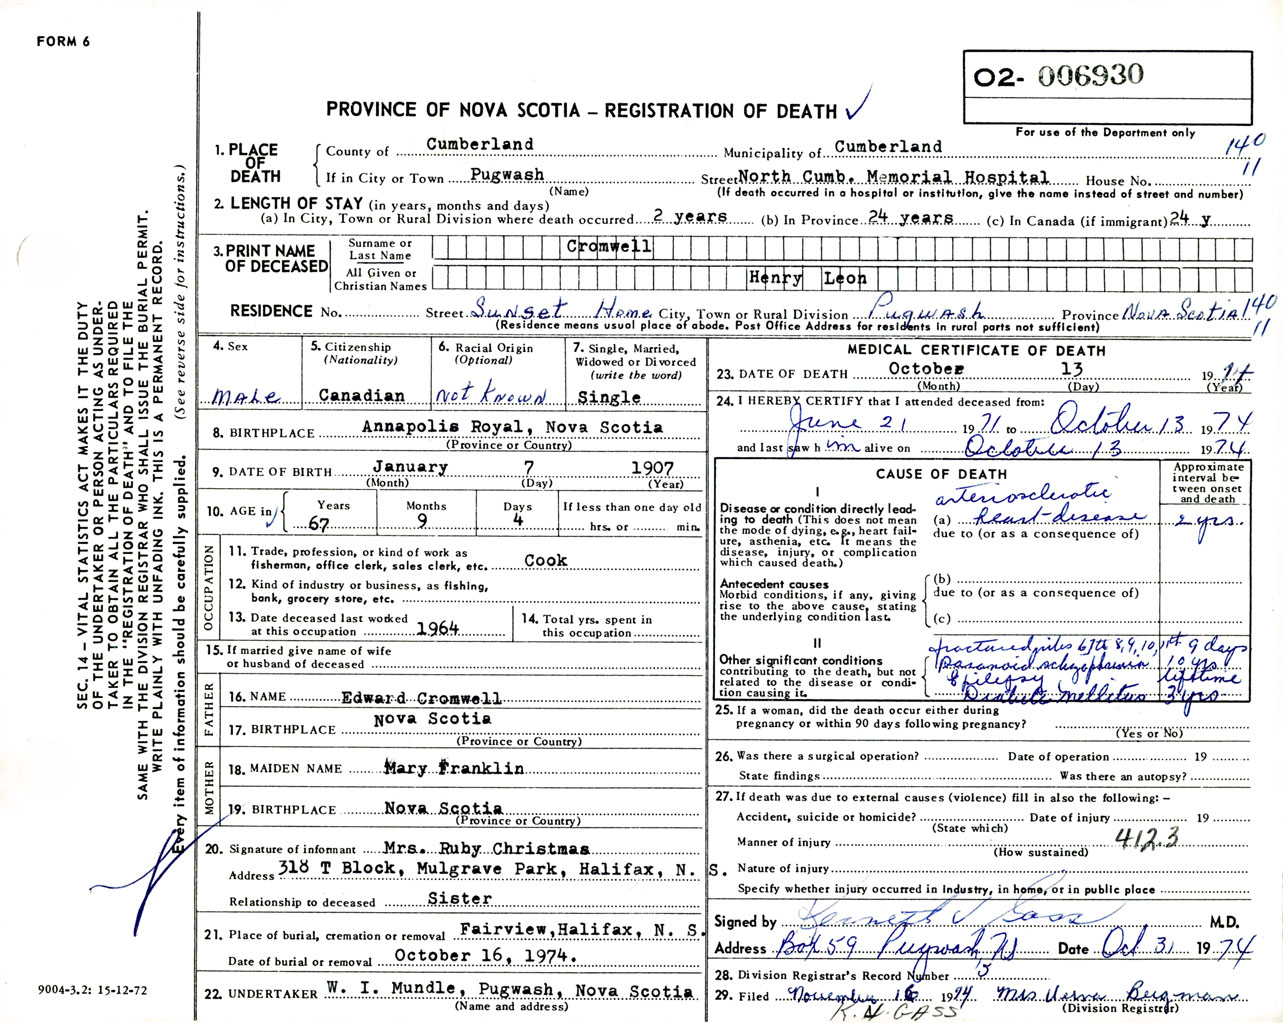 FORM 6
O2- 006930
PROVINCE OF NOVA SCOTIA – REGISTRATION OF DEATH ✓
For use of the Department only
140
11
1. PLACE OF DEATH
County of Cumberland Municipality of Cumberland
If in City or Town Pugwash Street North Cumb. Memorial Hospital House No.
(Name) (If death occurred in a hospital or institution, give the name instead of street and number)
2. LENGTH OF STAY (in years, months and days)
(a) In City, Town or Rural Division where death occurred 2 years (b) In Province 24 years (c) In Canada (if immigrant) 24 y
3. PRINT NAME OF DECEASED
Surname or Last Name Cromwell
All Given or Christian Names Henry Leon
RESIDENCE No. Street Sunset Home City, Town or Rural Division Pugwash Province Nova Scotia 140
(Residence means usual place of abode. Post Office Address for residents in rural parts not sufficient) 11
4. Sex
Male
5. Citizenship
(Nationality)
Canadian
6. Racial Origin
(Optional)
Not Known
7. Single, Married,
Widowed or Divorced
(write the word)
Single
8. BIRTHPLACE Annapolis Royal, Nova Scotia
(Province or Country)
9. DATE OF BIRTH January 7 1907
(Month) (Day) (Year)
10. AGE in ✓ Years Months Days If less than one day old
67 9 4 hrs. or min.
OCCUPATION
11. Trade, profession, or kind of work as
fisherman, office clerk, sales clerk, etc. Cook
12. Kind of industry or business, as fishing,
bank, grocery store, etc.
13. Date deceased last worked
at this occupation 1964
14. Total yrs. spent in
this occupation
15. If married give name of wife
or husband of deceased
FATHER
16. NAME Edward Cromwell
17. BIRTHPLACE Nova Scotia
(Province or Country)
MOTHER
18. MAIDEN NAME Mary Franklin
19. BIRTHPLACE Nova Scotia
(Province or Country)
20. Signature of informant Mrs. Ruby Christmas
Address 318 T Block, Mulgrave Park, Halifax, N. S.
Relationship to deceased Sister
21. Place of burial, cremation or removal Fairview, Halifax, N. S.
Date of burial or removal October 16, 1974.
22. UNDERTAKER W. I. Mundle, Pugwash, Nova Scotia
(Name and address)
MEDICAL CERTIFICATE OF DEATH
23. DATE OF DEATH October 13 1974
(Month) (Day) (Year)
24. I HEREBY CERTIFY that I attended deceased from:
June 21 1971 to October 13 1974
and last saw him alive on October 13 1974
CAUSE OF DEATH
Approximate
interval be-
tween onset
and death
I
Disease or condition directly lead-
ing to death (This does not mean
the mode of dying, e.g., heart fail-
ure, asthenia, etc. It means the
disease, injury, or complication
which caused death.)
arteriosclerotic
(a) heart disease 2 yrs.
due to (or as a consequence of)
Antecedent causes
Morbid conditions, if any, giving
rise to the above cause, stating
the underlying condition last.
(b)
due to (or as a consequence of)
(c)
II
Other significant conditions
contributing to the death, but not
related to the disease or condi-
tion causing it.
fractured ribs 67th 8, 9, 10, 11th 9 days
Paranoid schizophrenia 10 yrs
Epilepsy lifetime
Diabetes mellitus 3 yrs
25. If a woman, did the death occur either during
pregnancy or within 90 days following pregnancy?
(Yes or No)
26. Was there a surgical operation? Date of operation 19
State findings Was there an autopsy?
27. If death was due to external causes (violence) fill in also the following: –
Accident, suicide or homicide? Date of injury 19
(State which)
Manner of injury 412.3
(How sustained)
Nature of injury
Specify whether injury occurred in Industry, in home, or in public place
Signed by Kenneth V Gass M.D.
Address Box 59 Pugwash, NS Date Oct 31 1974
28. Division Registrar's Record Number 15
29. Filed November 16 1974 Mrs Verna Bergman
(Division Registrar)
K. V. GASS
SEC. 14 – VITAL STATISTICS ACT MAKES IT THE DUTY
OF THE UNDERTAKER OR PERSON ACTING AS UNDER-
TAKER TO OBTAIN ALL THE PARTICULARS REQUIRED
IN THE "REGISTRATION OF DEATH" AND TO FILE THE
SAME WITH THE DIVISION REGISTRAR WHO SHALL ISSUE THE BURIAL PERMIT.
WRITE PLAINLY WITH UNFADING INK. THIS IS A PERMANENT RECORD.
Every item of information should be carefully supplied. (See reverse side for instructions.)
9004-3.2: 15-12-72